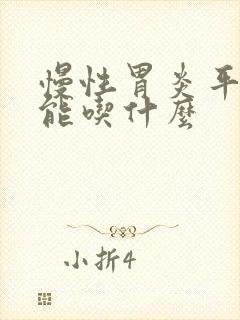 慢性胃炎平
能喫什麼
小折4